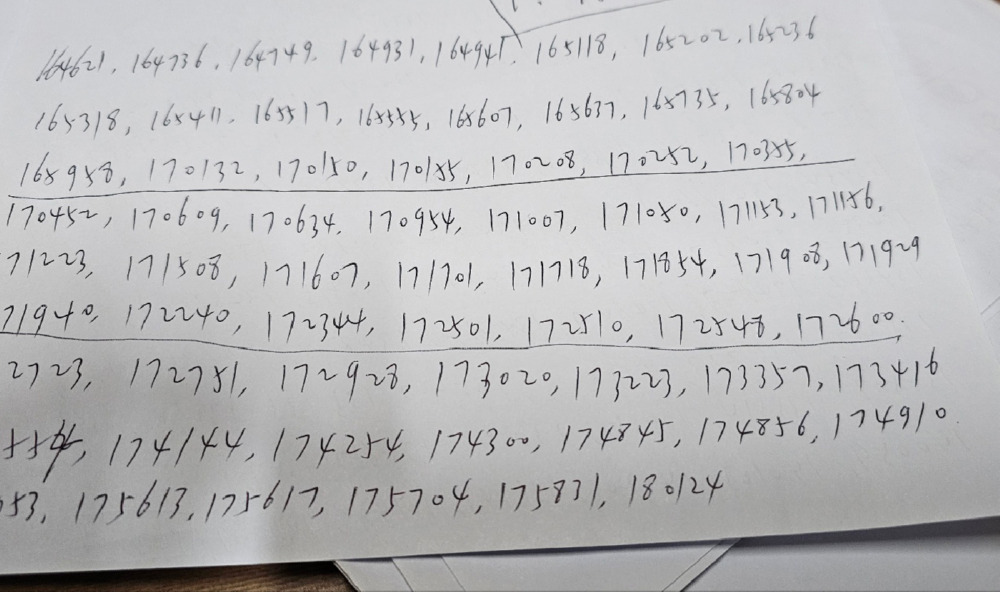 164621, 164736, 164749, 164931, 164945, 165118, 165202, 165236
165318, 165411, 165517, 165555, 165607, 165637, 165735, 165804
165958, 170132, 170150, 170155, 170208, 170252, 170355,
170452, 170609, 170634, 170954, 171007, 171050, 171153, 171156,
71223, 171508, 171607, 171701, 171718, 171854, 171908, 171929
71940, 172240, 172344, 172501, 172510, 172548, 172600.
2723, 172751, 172928, 173020, 173223, 173357, 173416
174144, 174254, 174300, 174845, 174856, 174910
53, 175613, 175617, 175704, 175831, 180124